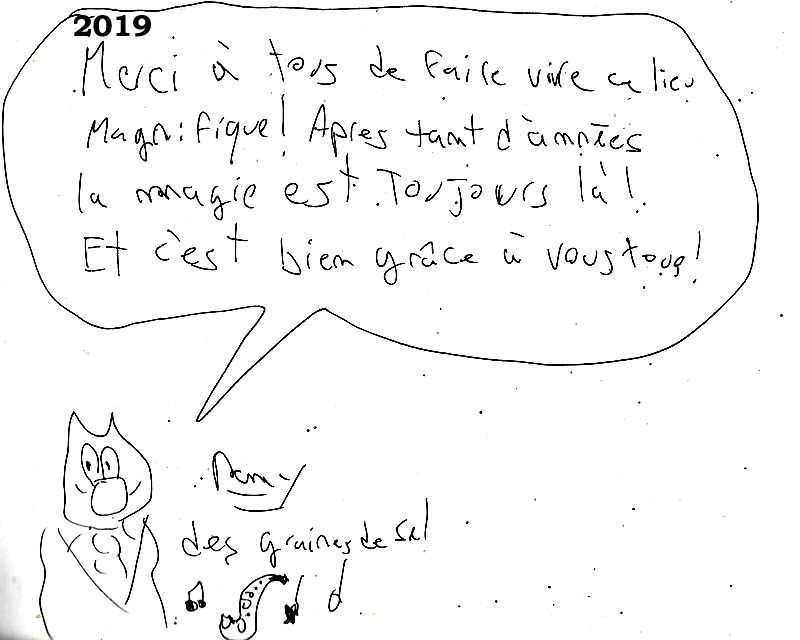 2019
Merci à tous de faire vivre ce lieu
Magnifique! Après tant d'années
la magie est Toujours là!
Et c'est bien grâce à vous tous!
des graines de sel